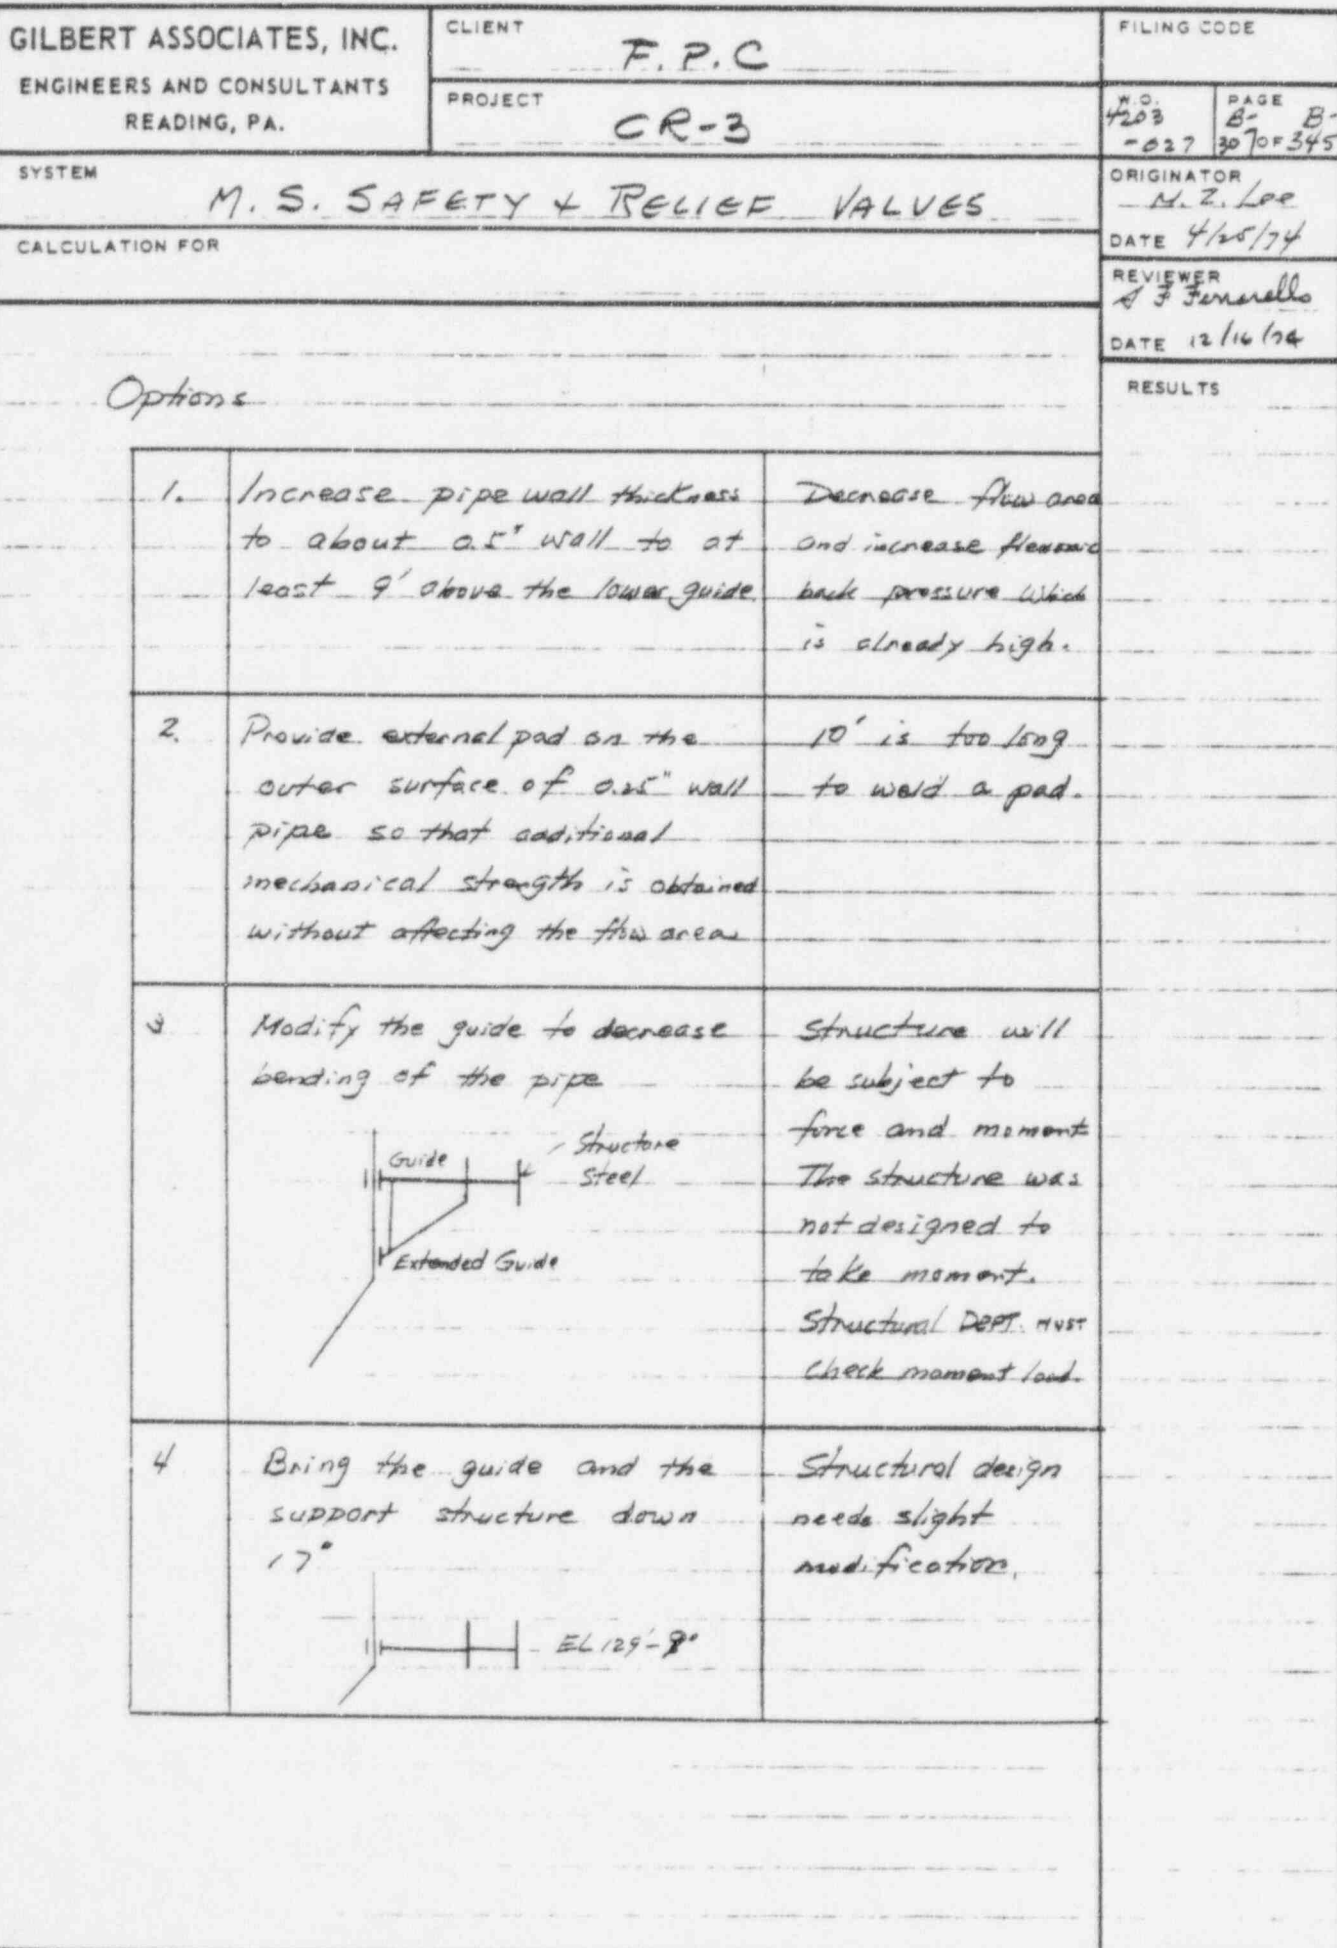 GILBERT ASSOCIATES, INC.
ENGINEERS AND CONSULTANTS
READING, PA.
CLIENT
F.P.C
PROJECT
CR-3
FILING CODE
W.O.
4203
-027
PAGE
B- B-
307 OF 345
SYSTEM
M. S. SAFETY & RELIEF VALVES
ORIGINATOR
M. Z. Lee
DATE 4/25/74
CALCULATION FOR
REVIEWER
S F Ferrarello
DATE 12/16/74
RESULTS
Options
1.
Increase pipe wall thickness
to about 0.5" wall to at
least 9' above the lower guide
Decrease flow area
and increase
back pressure which
is already high.
2.
Provide external pad on the
outer surface of 0.25" wall
pipe so that additional
mechanical strength is obtained
without affecting the flow area
10' is too long
to weld a pad.
3
Modify the guide to decrease
bending of the pipe
Guide
Structure
Steel
Extended Guide
Structure will
be subject to
force and moment
The structure was
not designed to
take moment.
Structural DEPT. MUST
check moment load.
4
Bring the guide and the
support structure down
17"
EL 129'-9"
Structural design
needs slight
modification.